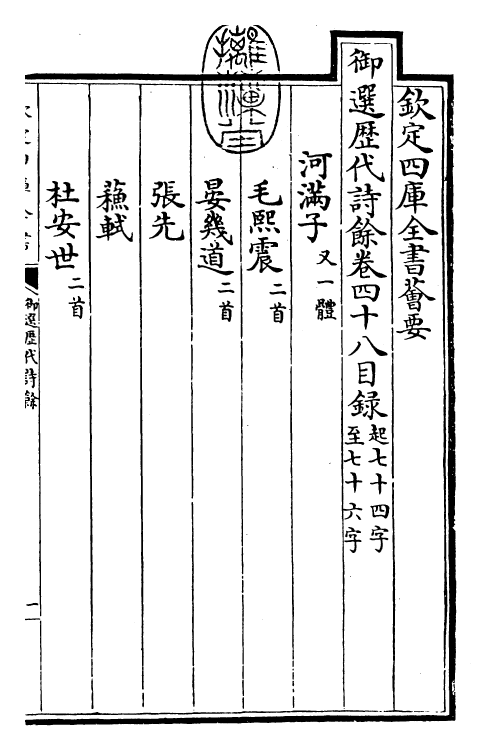 欽定四庫全書薈要
御選歷代詩餘卷四十八目録起七十四字至七十六字
河滿子又一體
毛熙震二首
晏幾道二首
張先
蘇軾
杜安世二首
御選歷代詩餘
一